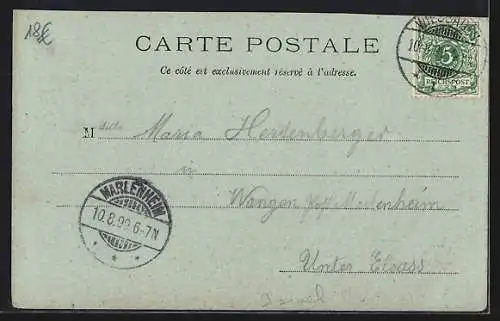 18€
CARTE POSTALE
Ce côté est exclusivement réservé à l'adresse.
5
REICHSPOST
Mdelle Maria Herdenberger
in
Wangen Post Marlenheim
MARLENHEIM
10.8.99 6-7N
Unter Elsass